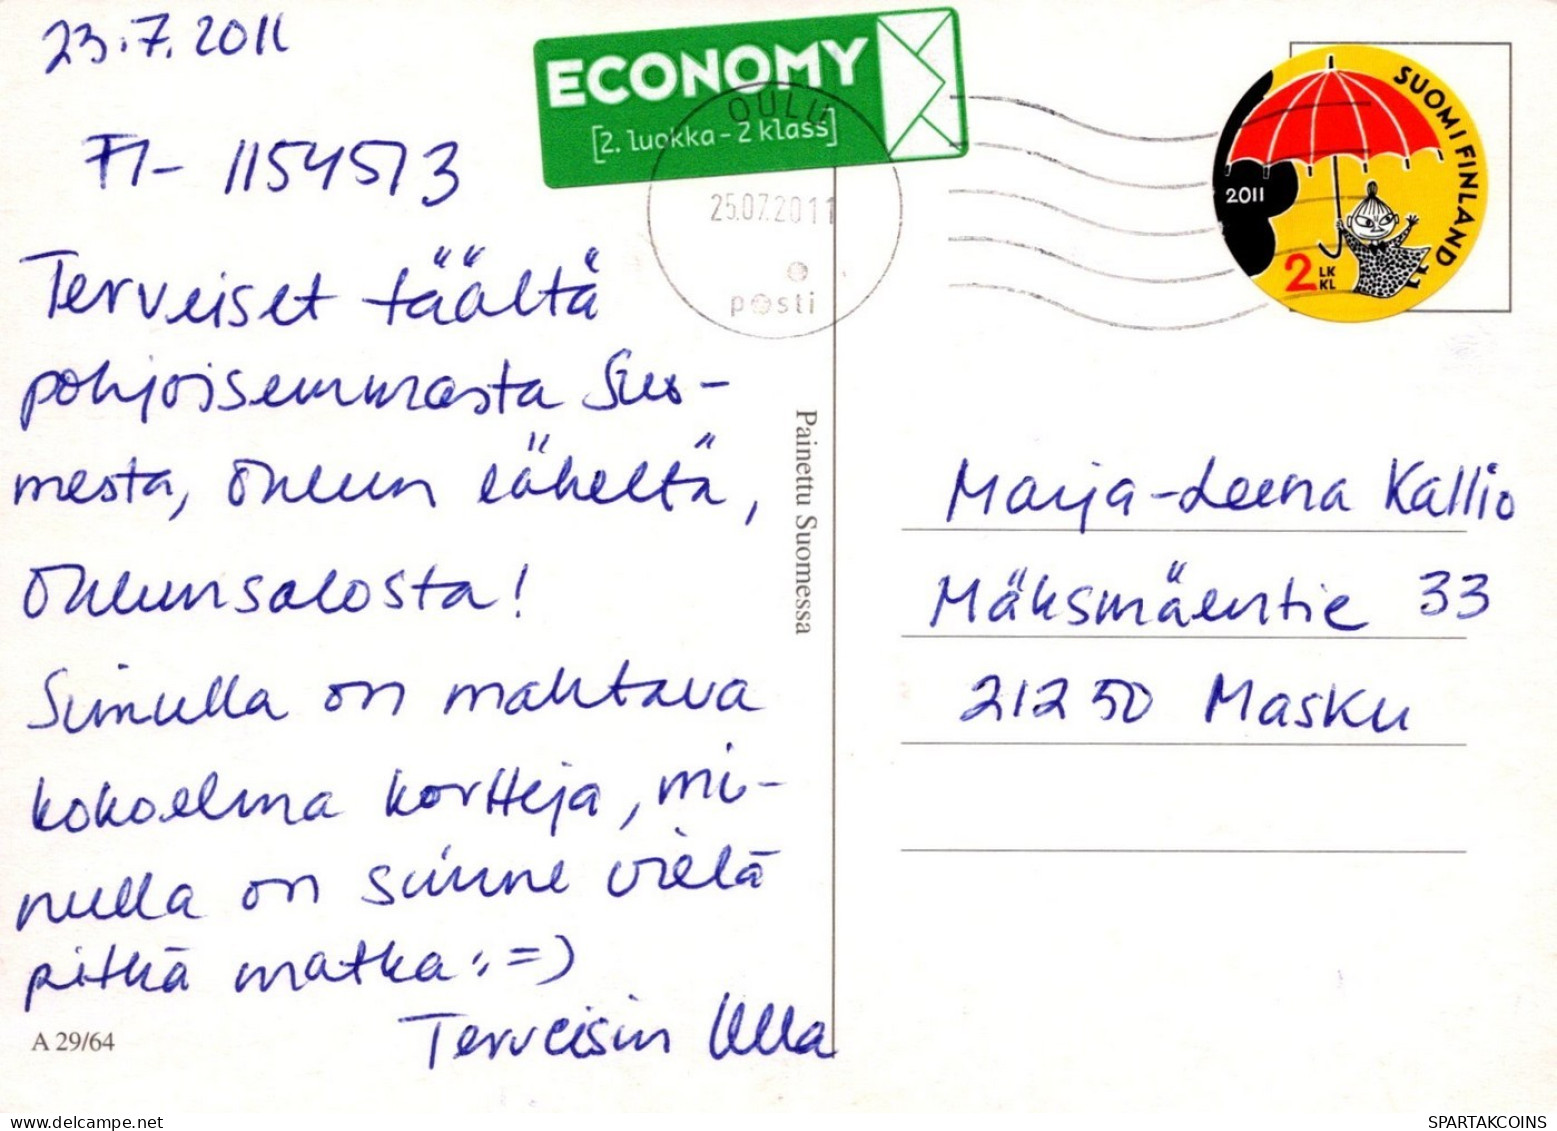 23.7.2011
FI- 1154513
Terveiset täältä
pohjoisemmasta Suo-
mesta, Oulun läheltä,
Oulunsalosta!
Sinulla on mahtava
kokoelma kortteja, mi-
nulla on sinne vielä
pitkä matka :=)
Terveisin Ulla
A 29/64
ECONOMY
[2. luokka - 2 klass]
OULU
25.07.2011
posti
Painettu Suomessa
SUOMI FINLAND
2011
2 LK
KL
Marja-Leena Kallio
Mäksmäentie 33
21250 Masku
SPARTAKCOINS